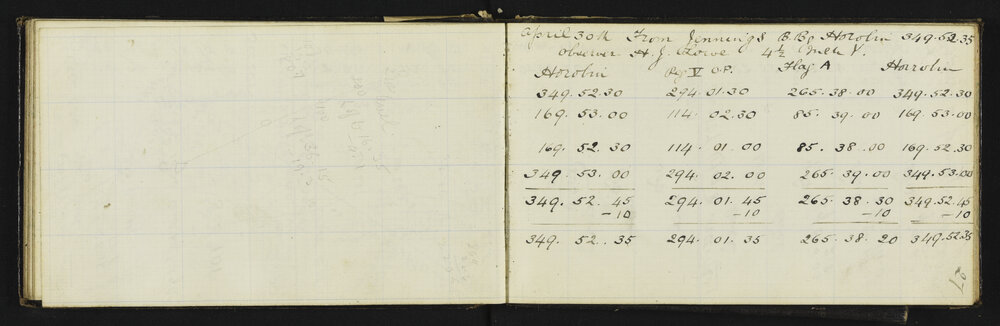 April 30th From Jennings B. Bg Horolin 349.52.35
Observer H. J. Lowe 4½ inch V.
Horolin Peg V O.P. Flag A Horrolin
349.52.30 294.01.30 265.38.00 349.52.30
169.53.00 114.02.30 85.39.00 169.53.00
169.52.30 114.01.00 85.38.00 169.52.30
349.53.00 294.02.00 265.39.00 349.53.00
349.52.45 294.01.45 265.38.30 349.52.45
-10 -10 -10 -10
349.52.35 294.01.35 265.38.20 349.52.35